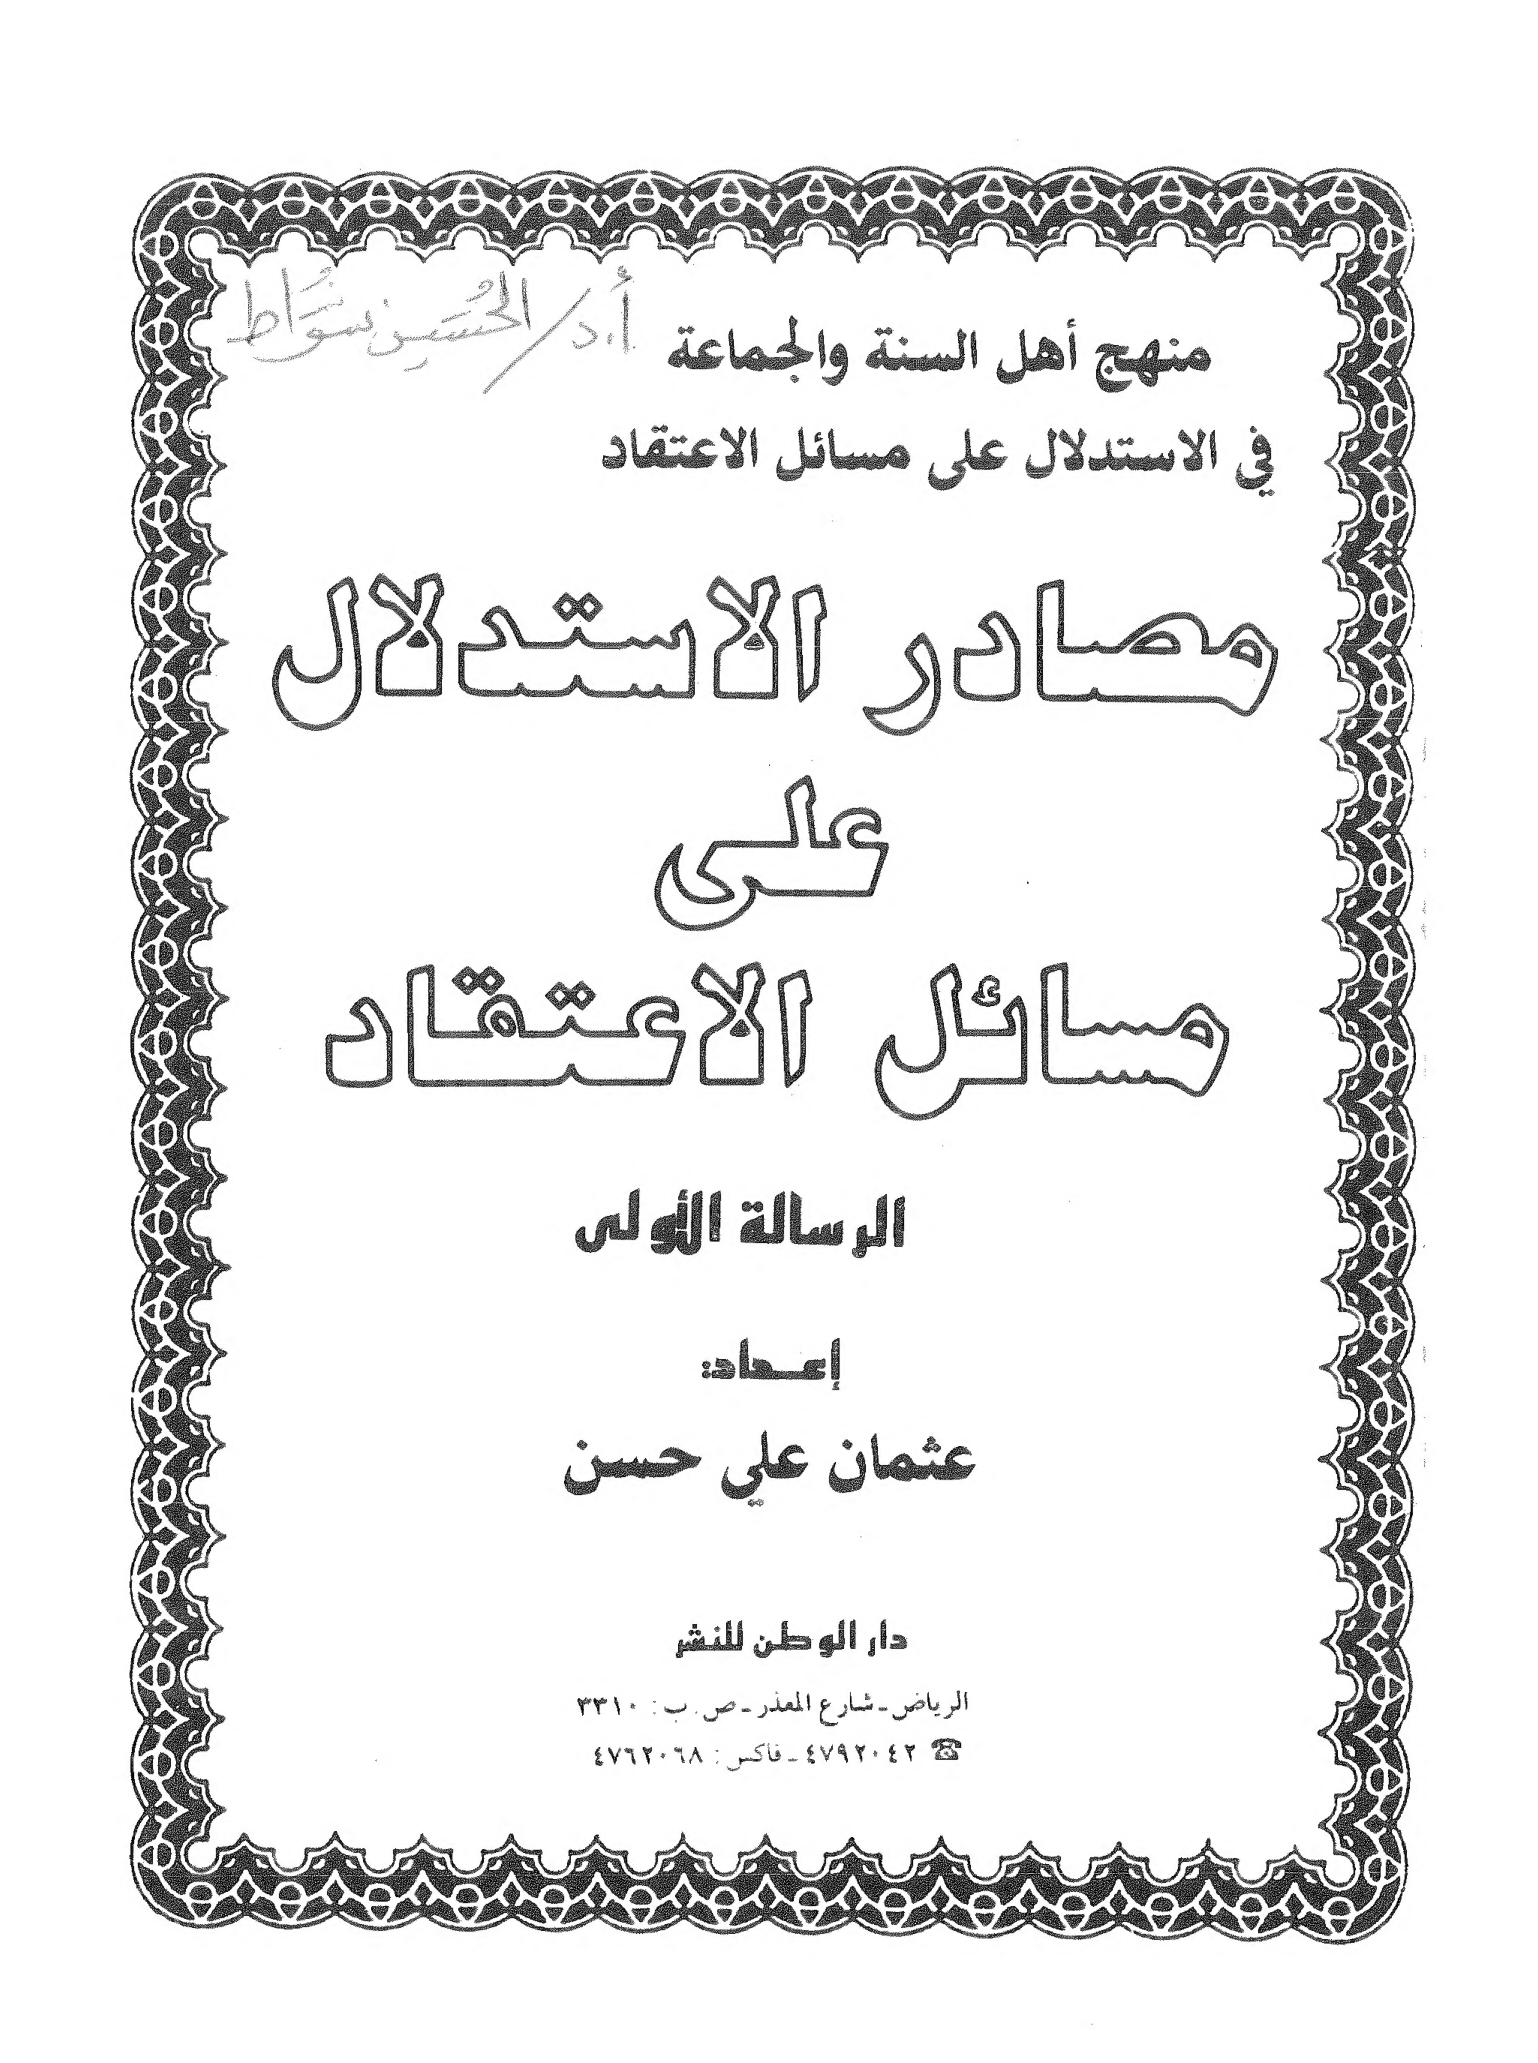 أ.د/الحُسَين شوَّاط
منهج أهل السنة والجماعة
في الاستدلال على مسائل الاعتقاد
مصادر الاستدلال
على
مسائل الاعتقاد
الرسالة الأولى
إعداد:
عثمان علي حسن
دار الوطن للنشر
الرياض ـ شارع المعذر ـ ص. ب : ٣٣١٠
☎ ٤٧٩٢٠٤٢ ـ فاكس : ٤٧٦٢٠٦٨